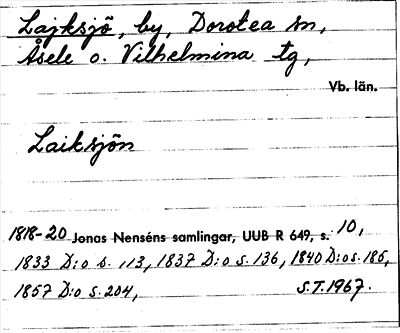 Lajksjö, by, Dorotea sn,
Åsele o. Vilhelmina tg,
Vb. län.
Laiksjön
1818-20 Jonas Nenséns samlingar, UUB R 649, s. 10,
1833 D:o s. 113, 1837 D:o s. 136, 1840 D:o s. 186,
1857 D:o s. 204, S.T. 1967.